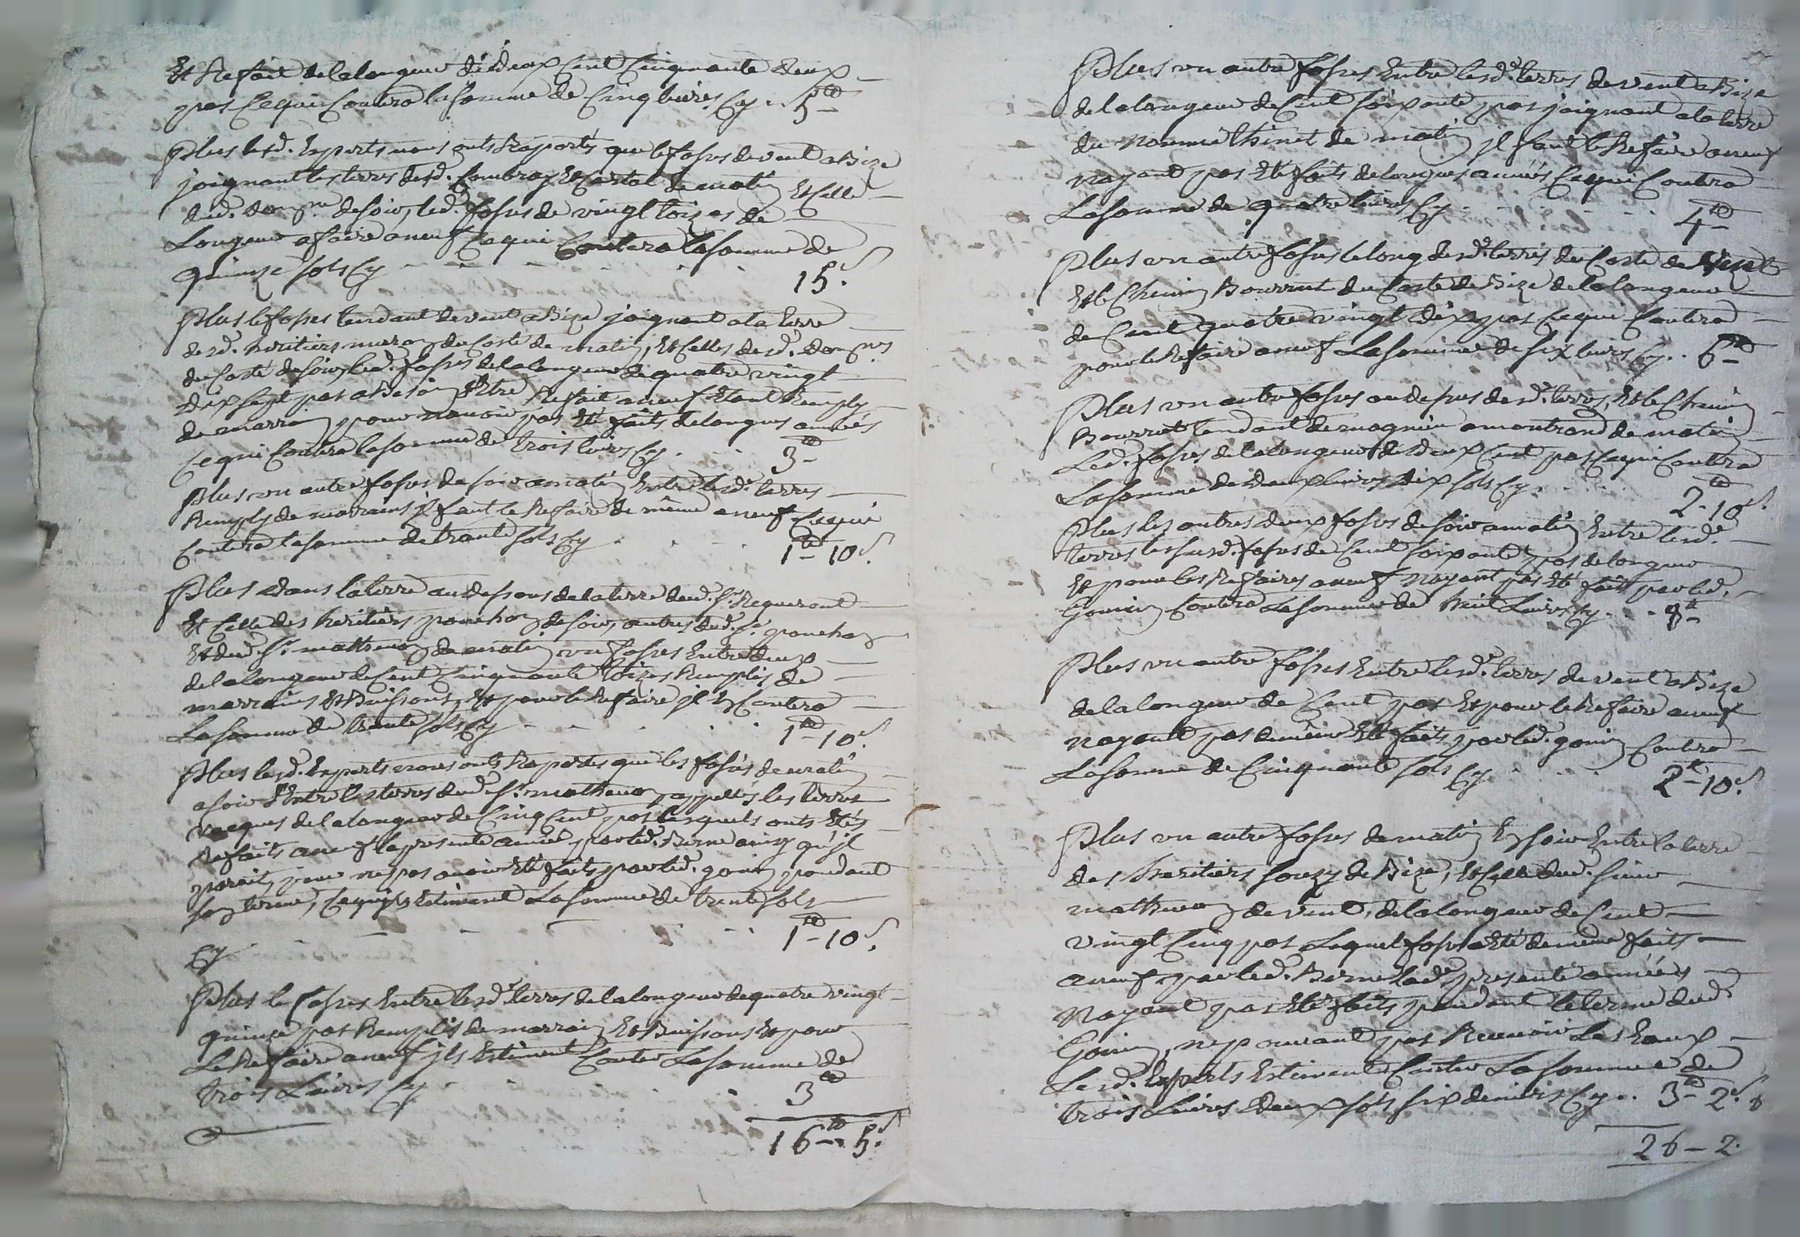 Et Refaire de la longueur desd. deux Cent Cinquante deux
pas Cequi Coutera la somme de Cinq livres Cy .. 5 ₶
Plus lesd. Experts nous onts Raportés que le fossés de vent a Bize
joignant les terres desd. Combray Et Cortal de matin Et Celle
dud. dom.ne de soir, led. fossés de vingt toizes de
Longueur a faire a neuf Cequi Coutera la somme de
quinze sols Cy 15 s.
Plus le fossés tendant de vent a Bize joignant a la terre
desd. heritiers muron du Costé de matin, Et Celles desd. dom.nes
du Costé de soir, led. fossés de la longueur de quatre vingt
dix sept pas a Besoin d'Etre Refait a neuf Etant Remply
de marrain pour n'avoir pas Eté faits de longues années
Ce qui Coutera la somme de trois livres Cy . 3 ₶
Plus un autre fossés de soir a matin Entre lesd. terres
Remply de marrains il faut le Refaire de même a neuf Cequi
Coutera la somme de trante sols Cy 1 ₶ 10 s.
Plus dans la terre au dessous de la terre dud. Sr. Requerant
Et Celle des heritiers ponchon de soir, autres dud. Sr. ponchon
Et dud. Sr. mathevon de matin un fossés Entre deux
de la longueur de Cent Cinquante toizes Remplis de
marrains Et Buissons, Et pour le Refaire il En Coutera
La somme de trente sols Cy 1 ₶ 10 s.
Plus lesd. Experts nous onts Raportés que les fossés de matin
a soir d'Entre les terres dud. Sr. mathevon appellés les terres
vacques de la longueur de Cinq Cent pas lesquels onts Etés
Refaits a neuf la presente année par led. Berne ainsy qu'il
paroit, pour ne pas avoir Eté faits par led. gonin pendant
son terme, Cequ'ils Estiment La somme de trente sols
Cy 1 ₶ 10 s.
Plus le fossés Entre lesd. terres de la longueur de quatre vingt
quinze pas Remplis de marrain Et Buissons Et pour
Le Refaire a neuf ils Estiment Couter La somme de
trois Livres Cy 3 ₶
16 ₶ 5 s.
Plus un autre fossés Entre lesd. terres de vent a Bize
de la longueur de Cent soixante pas joignant a la terre
du nommé thinet de matin il faut le Refaire a neuf
nayant pas Eté faits de longues années Cequi Coutera
La somme de quatre livres Cy 4 ₶
Plus un autre fossés le long desd. terres du Costé de vent
Et le Chemin Bourrut du Costé de Bize de la longueur
de Cent quatre vingt dix pas Cequi Coutera
pour le Refaire a neuf La somme de six livres Cy .. 6 ₶
Plus un autre fossés au dessus desd. terres, Et le Chemin
Bourrut tendant de magnieu a montrond de matin
Led. fossés de la longueur de deux Cent pas Cequi Coutera
La somme de deux livres dix sols Cy . 2 ₶ 10 s.
Plus les autres deux fossés de soir a matin Entre lesd.
terres les susd. fossés de Cent soixante pas de longueur
Et pour les Refaires a neuf nayant pas Eté fait par led.
Gonin Coutera La somme de huit Livres Cy . . 8 ₶
Plus un autre fossés Entre lesd. terres de vent a Bize
de la longueur de Cent pas Et pour le Refaire a neuf
nayant pas de même Eté faits par led. gonin Coutera
La somme de Cinquante sols Cy 2 ₶ 10 s.
Plus un autre fossés de matin En soir Entre la terre
des heritiers souzy de Bize, Et Celle dud. sieur
mathevon de vent, de la longueur de Cent
vingt Cinq pas Lequel fossés a Eté de même faits
a neuf par led. Berne lad. presente années
nayant pas Eté faits pendant le terme dud.
Gonin, ne pouvant pas Recevoir Les Eaux
Lesd. Experts Estiment Couter La somme de
trois Livres deux sols six deniers Cy .. 3 ₶ 2 s. 6
26 - 2.